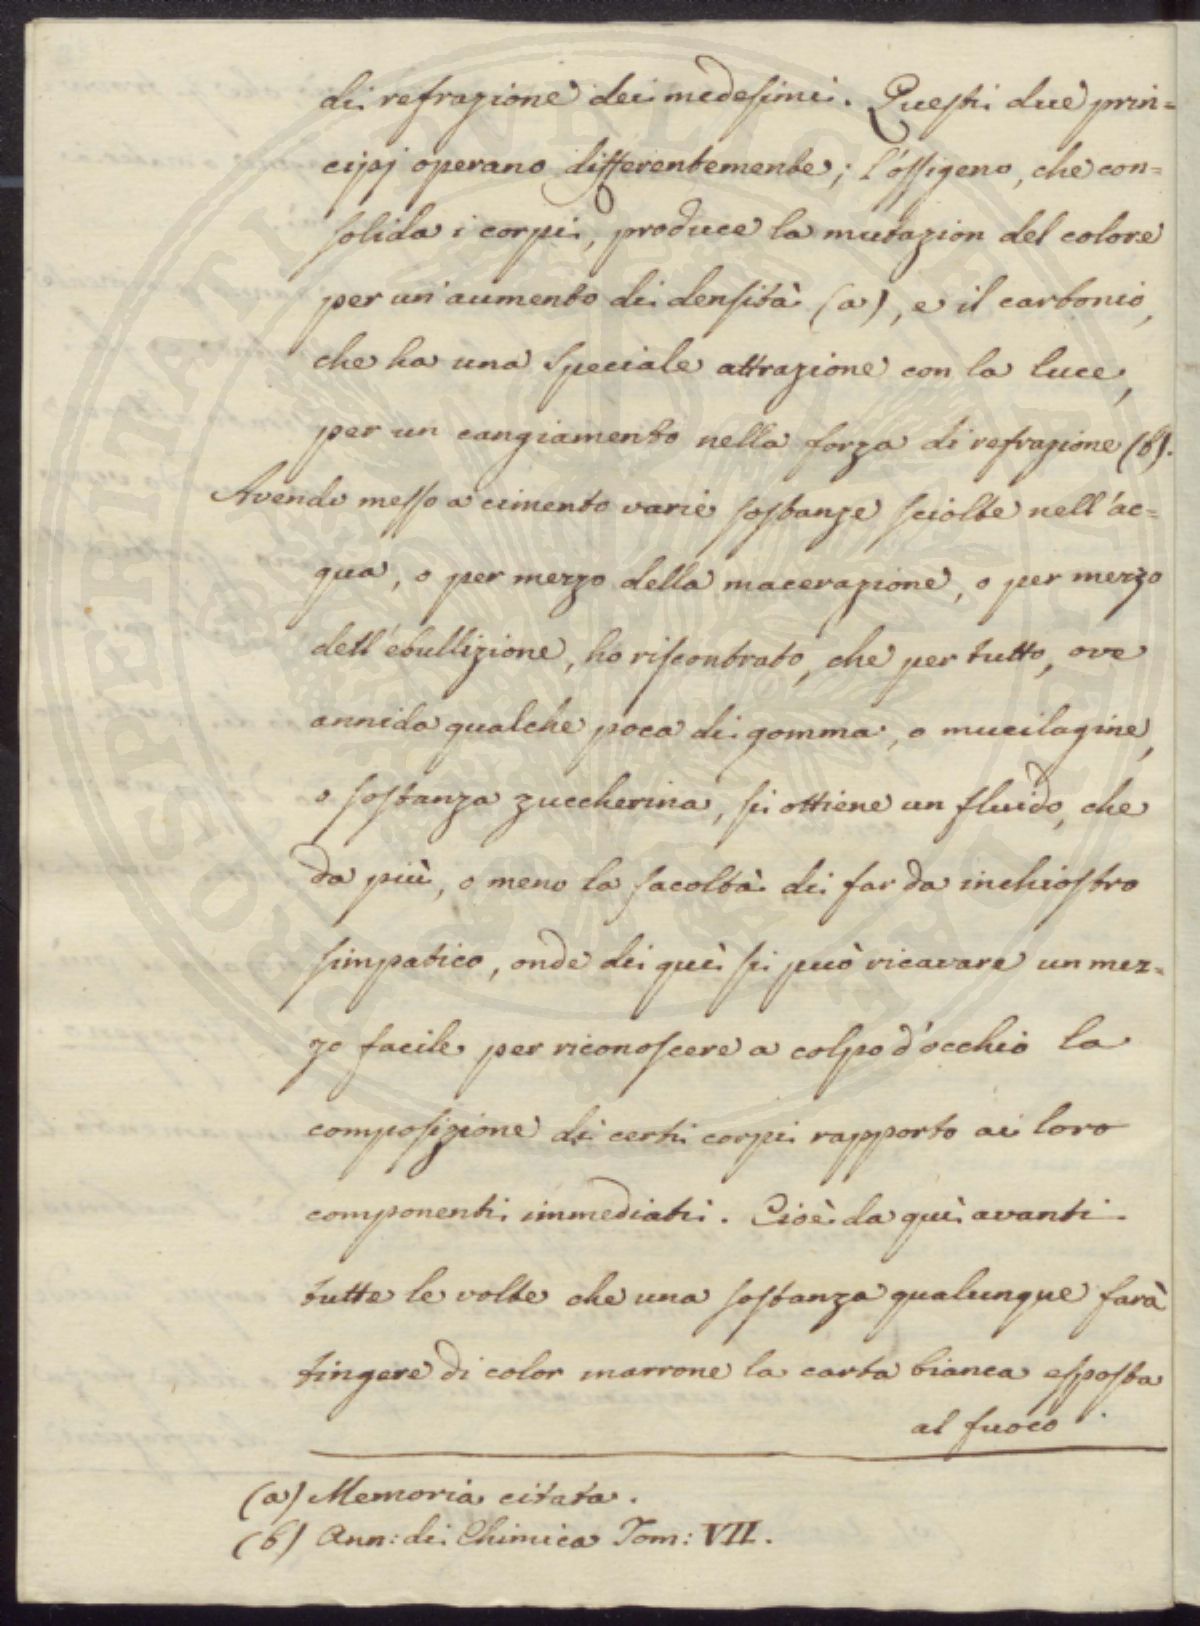 di refrazione dei medesimi. Questi due prin=
cipj operano differentemente; l'ossigeno, che con=
solida i corpi, produce la mutazion del colore
per un'aumento di densità (a), e il carbonio,
che ha una speciale attrazione con la luce,
per un cangiamento nella forza di refrazione (b).
Avendo messo a cimento varie sostanze sciolte nell'ac=
qua, o per mezzo della macerazione, o per mezzo
dell'ebullizione, ho riscontrato, che per tutto, ove
annida qualche poca di gomma, o mucilagine,
o sostanza zuccherina, si ottiene un fluido, che
da più, o meno la facoltà di far da inchiostro
simpatico, onde di quì si può ricavare un mez=
zo facile per riconoscere a colpo d'occhio la
composizione di certi corpi rapporto ai loro
componenti immediati. Cioè da quì avanti
tutte le volte che una sostanza qualunque farà
tingere di color marrone la carta bianca esposta
al fuoco
(a) Memoria citata.
(b) Ann: di Chimica Tom: VII.